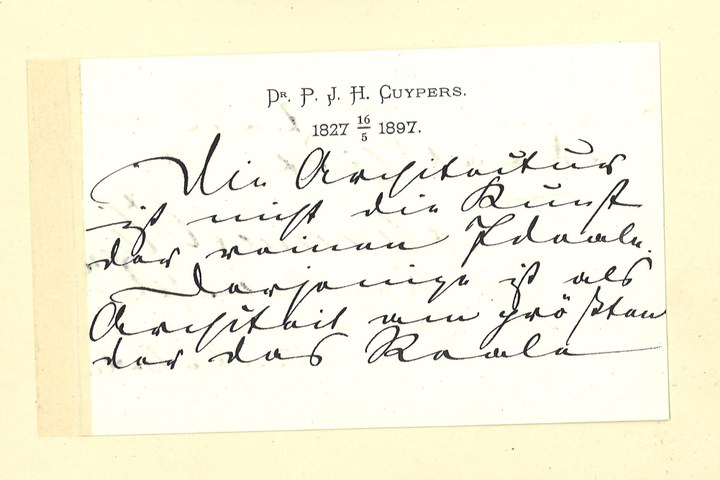 Dr. P. J. H. Cuypers.
1827 16/5 1897.
Die Architectur
ist nicht die Kunst
der reinen Ideale.
Derjenige ist als
Architekt am größten
der das Reale